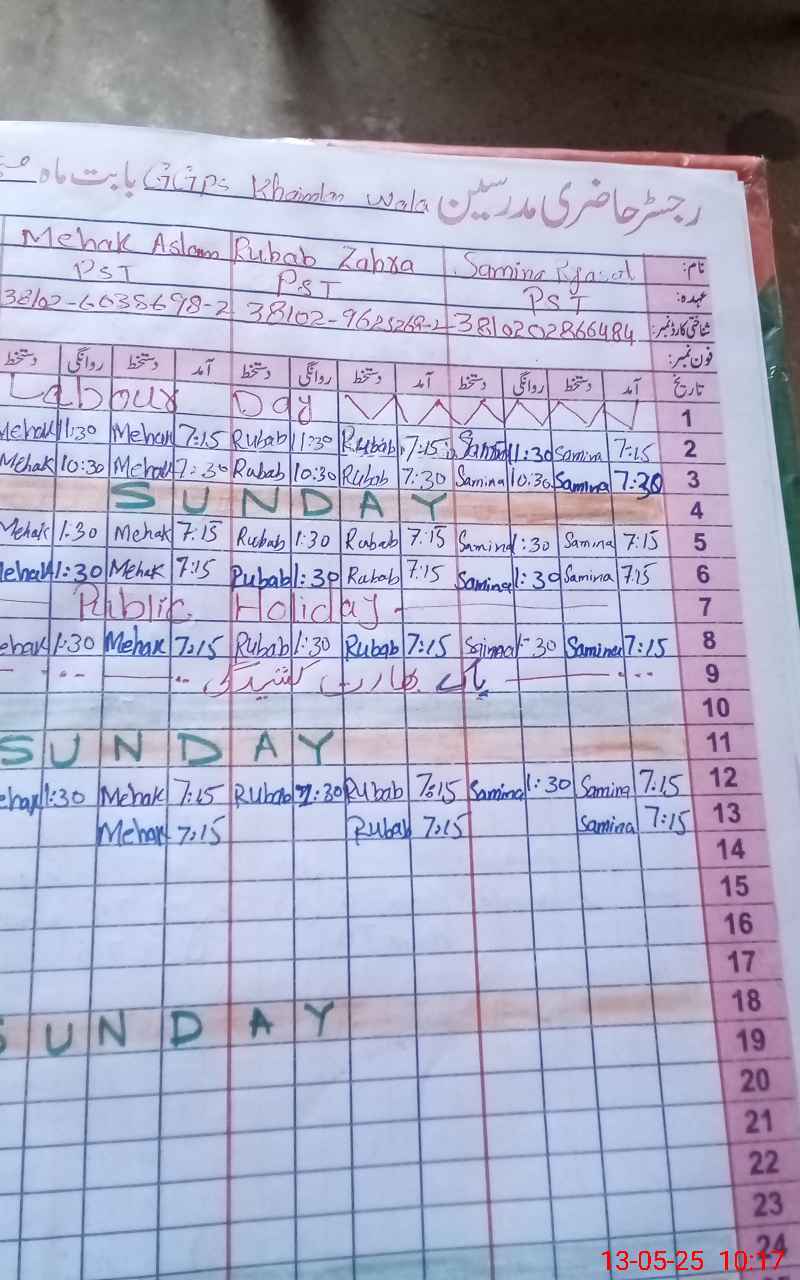 رجسٹر حاضری مدرسین GGPS Khaimlan wala بابت ماہ
نام: Samina Rubab Zahra Mehak Aslam
عہدہ: PST PST PST
شناختی کارڈ نمبر: 3810202866484 38102-9625269-2 38102-6635698-2
فون نمبر:
تاریخ آمد دستخط روانگی دستخط آمد دستخط روانگی دستخط آمد دستخط روانگی دستخط
1 Labour Day
2 7:15 Samina 11:30 Samina 7:15 Rubab 11:30 Rubab 7:15 Mehak 11:30 Mehak
3 7:30 Samina 10:30 Samina 7:30 Rubab 10:30 Rubab 7:30 Mehak 10:30 Mehak
4 SUNDAY
5 7:15 Samina 1:30 Samina 7:15 Rubab 1:30 Rubab 7:15 Mehak 1:30 Mehak
6 7:15 Samina 1:30 Samina 7:15 Rubab 1:30 Rubab 7:15 Mehak 1:30 Mehak
7 Public Holiday
8 7:15 Samina 1:30 Samina 7:15 Rubab 1:30 Rubab 7:15 Mehak 1:30 Mehak
9 پاک بھارت کشیدگی
10
11 SUNDAY
12 7:15 Samina 1:30 Samina 7:15 Rubab 1:30 Rubab 7:15 Mehak 1:30 Mehak
13 7:15 Samina 7:15 Rubab 7:15 Mehak
14
15
16
17
18 SUNDAY
19
20
21
22
23
24
13-05-25 10:17